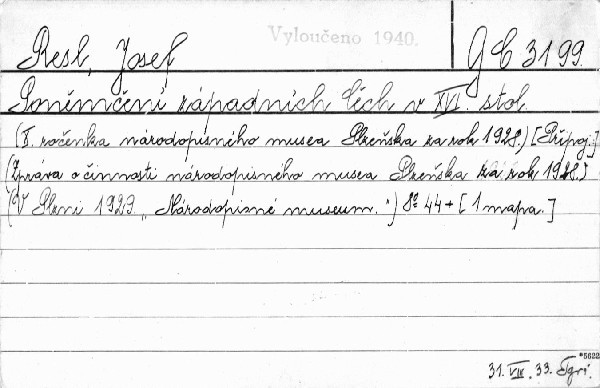 Vyloučeno 1940.
Resl, Josef
GC 3199.
Poněmčení západních Čech v XVI. stol.
(X. ročenka národopisného musea Plzeňska za rok 1928.) [Připoj.]
(Zpráva o činnosti národopisného musea Plzeňska za rok 1928.)
(V Plzni 1929 „Národopisné museum.“) 8° 44 + [1 mapa.]
*5622
31. VIII. 33.